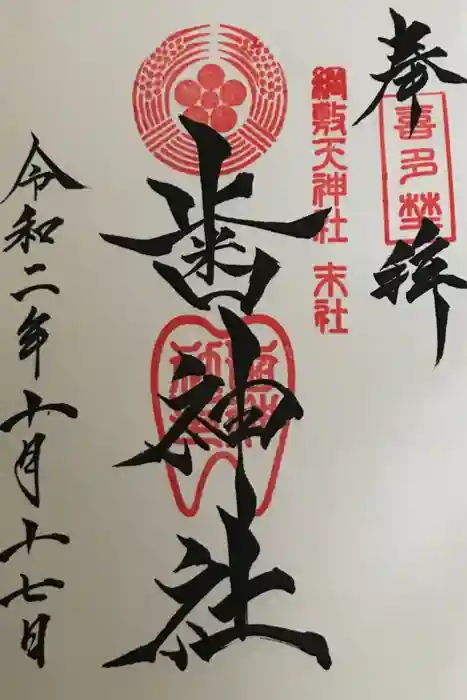 奉拝
喜多埜
綱敷天神社 末社
歯神社
令和二年十月十七日